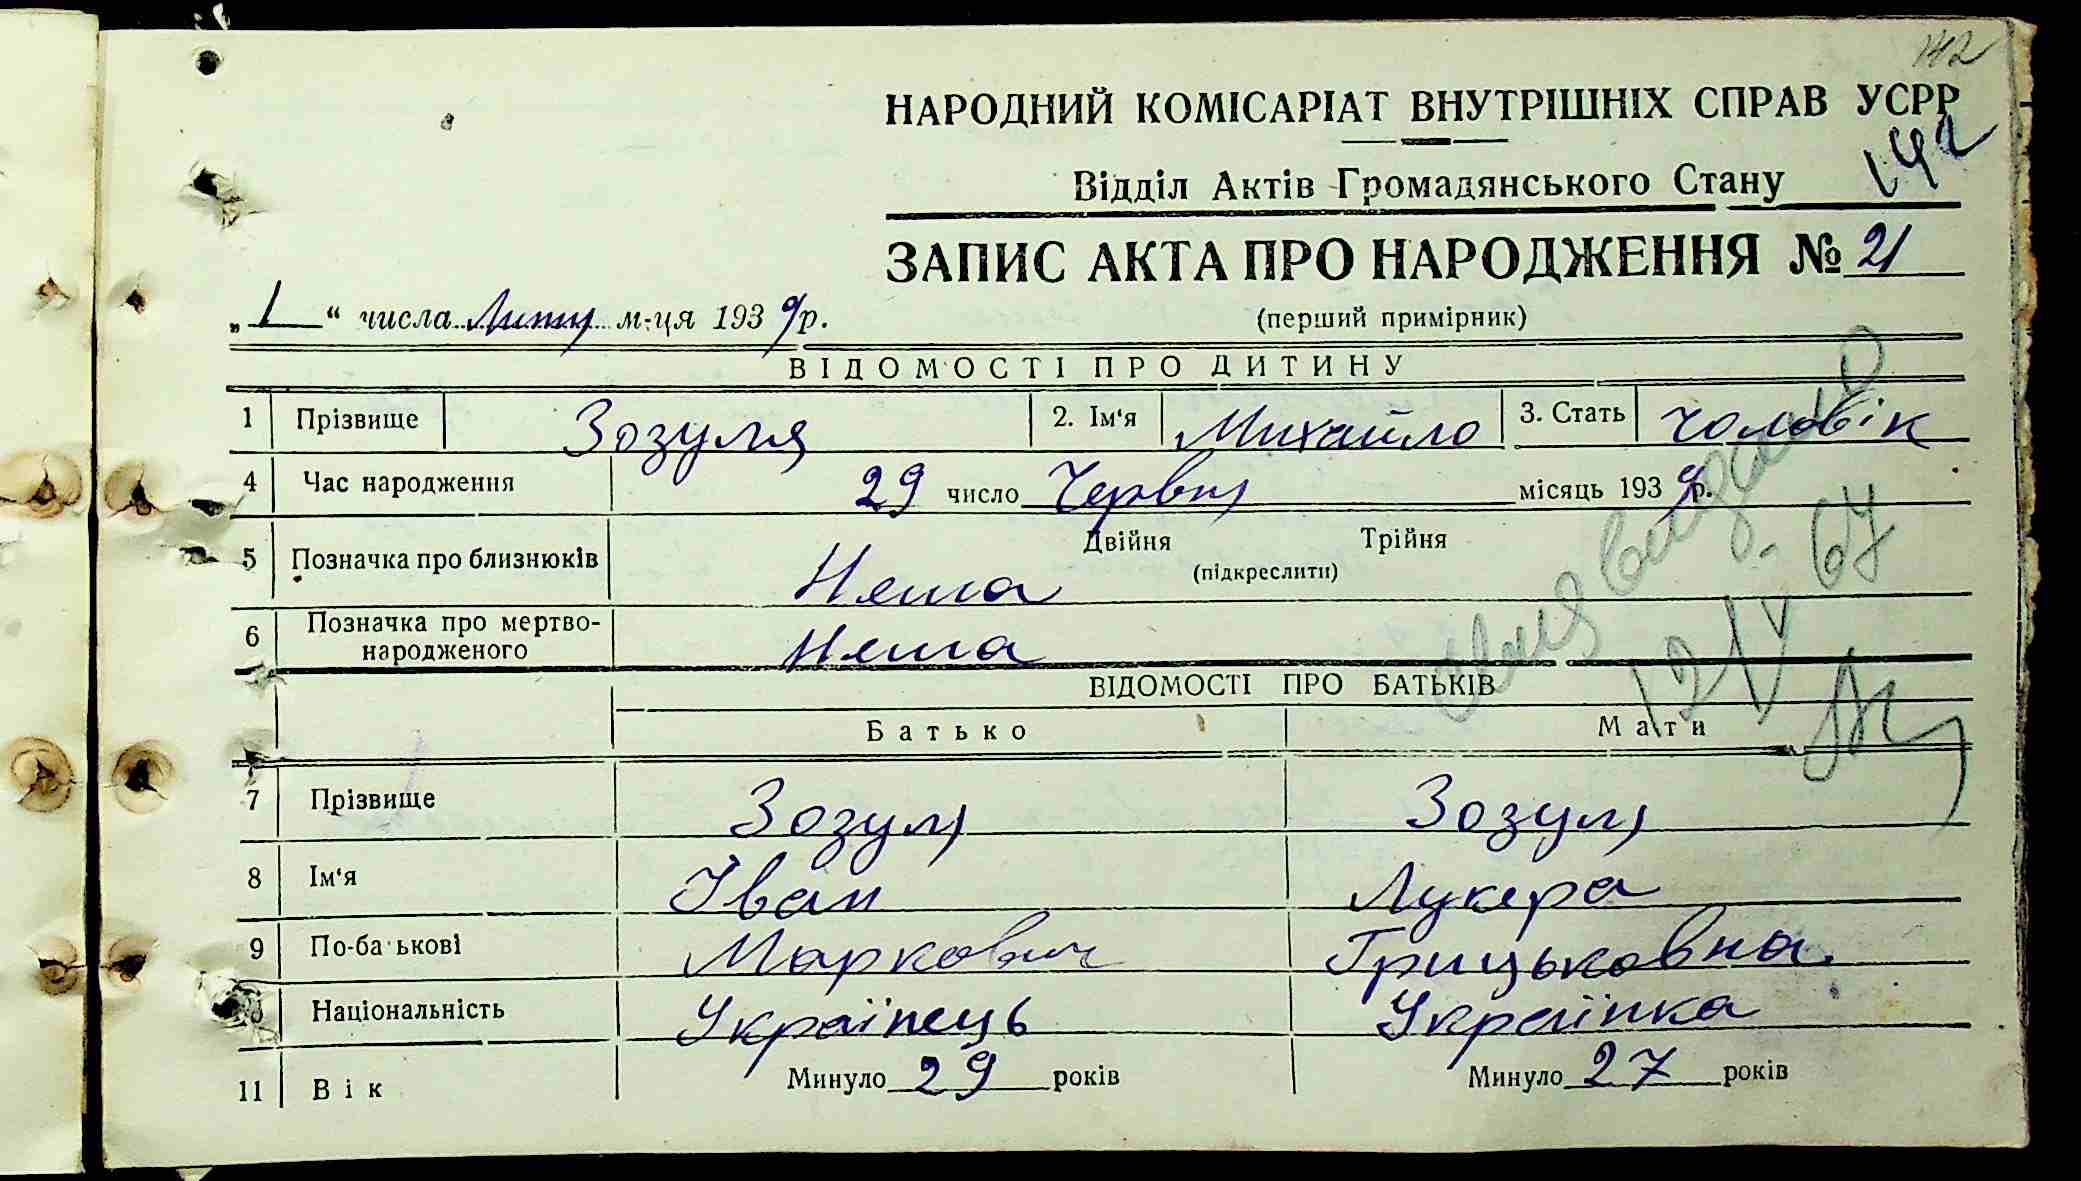 142
НАРОДНИЙ КОМІСАРІАТ ВНУТРІШНІХ СПРАВ УСРР
142
Відділ Актів Громадянського Стану
ЗАПИС АКТА ПРО НАРОДЖЕННЯ № 21
„1“ числа Липня м-ця 1939 р.
(перший примірник)
ВІДОМОСТІ ПРО ДИТИНУ
1 Прізвище Зозуля 2. Ім'я Михайло 3. Стать чоловік
4 Час народження 29 число Червня місяць 1939 р.
5 Позначка про близнюків Нема Двійня Трійня
(підкреслити)
6 Позначка про мертво-
народженого Нема
ВІДОМОСТІ ПРО БАТЬКІВ
Батько Мати
7 Прізвище Зозуля Зозуля
8 Ім'я Іван Лукера
9 По-батькові Маркович Грицьковна
Національність Українець Українка
11 Вік Минуло 29 років Минуло 27 років